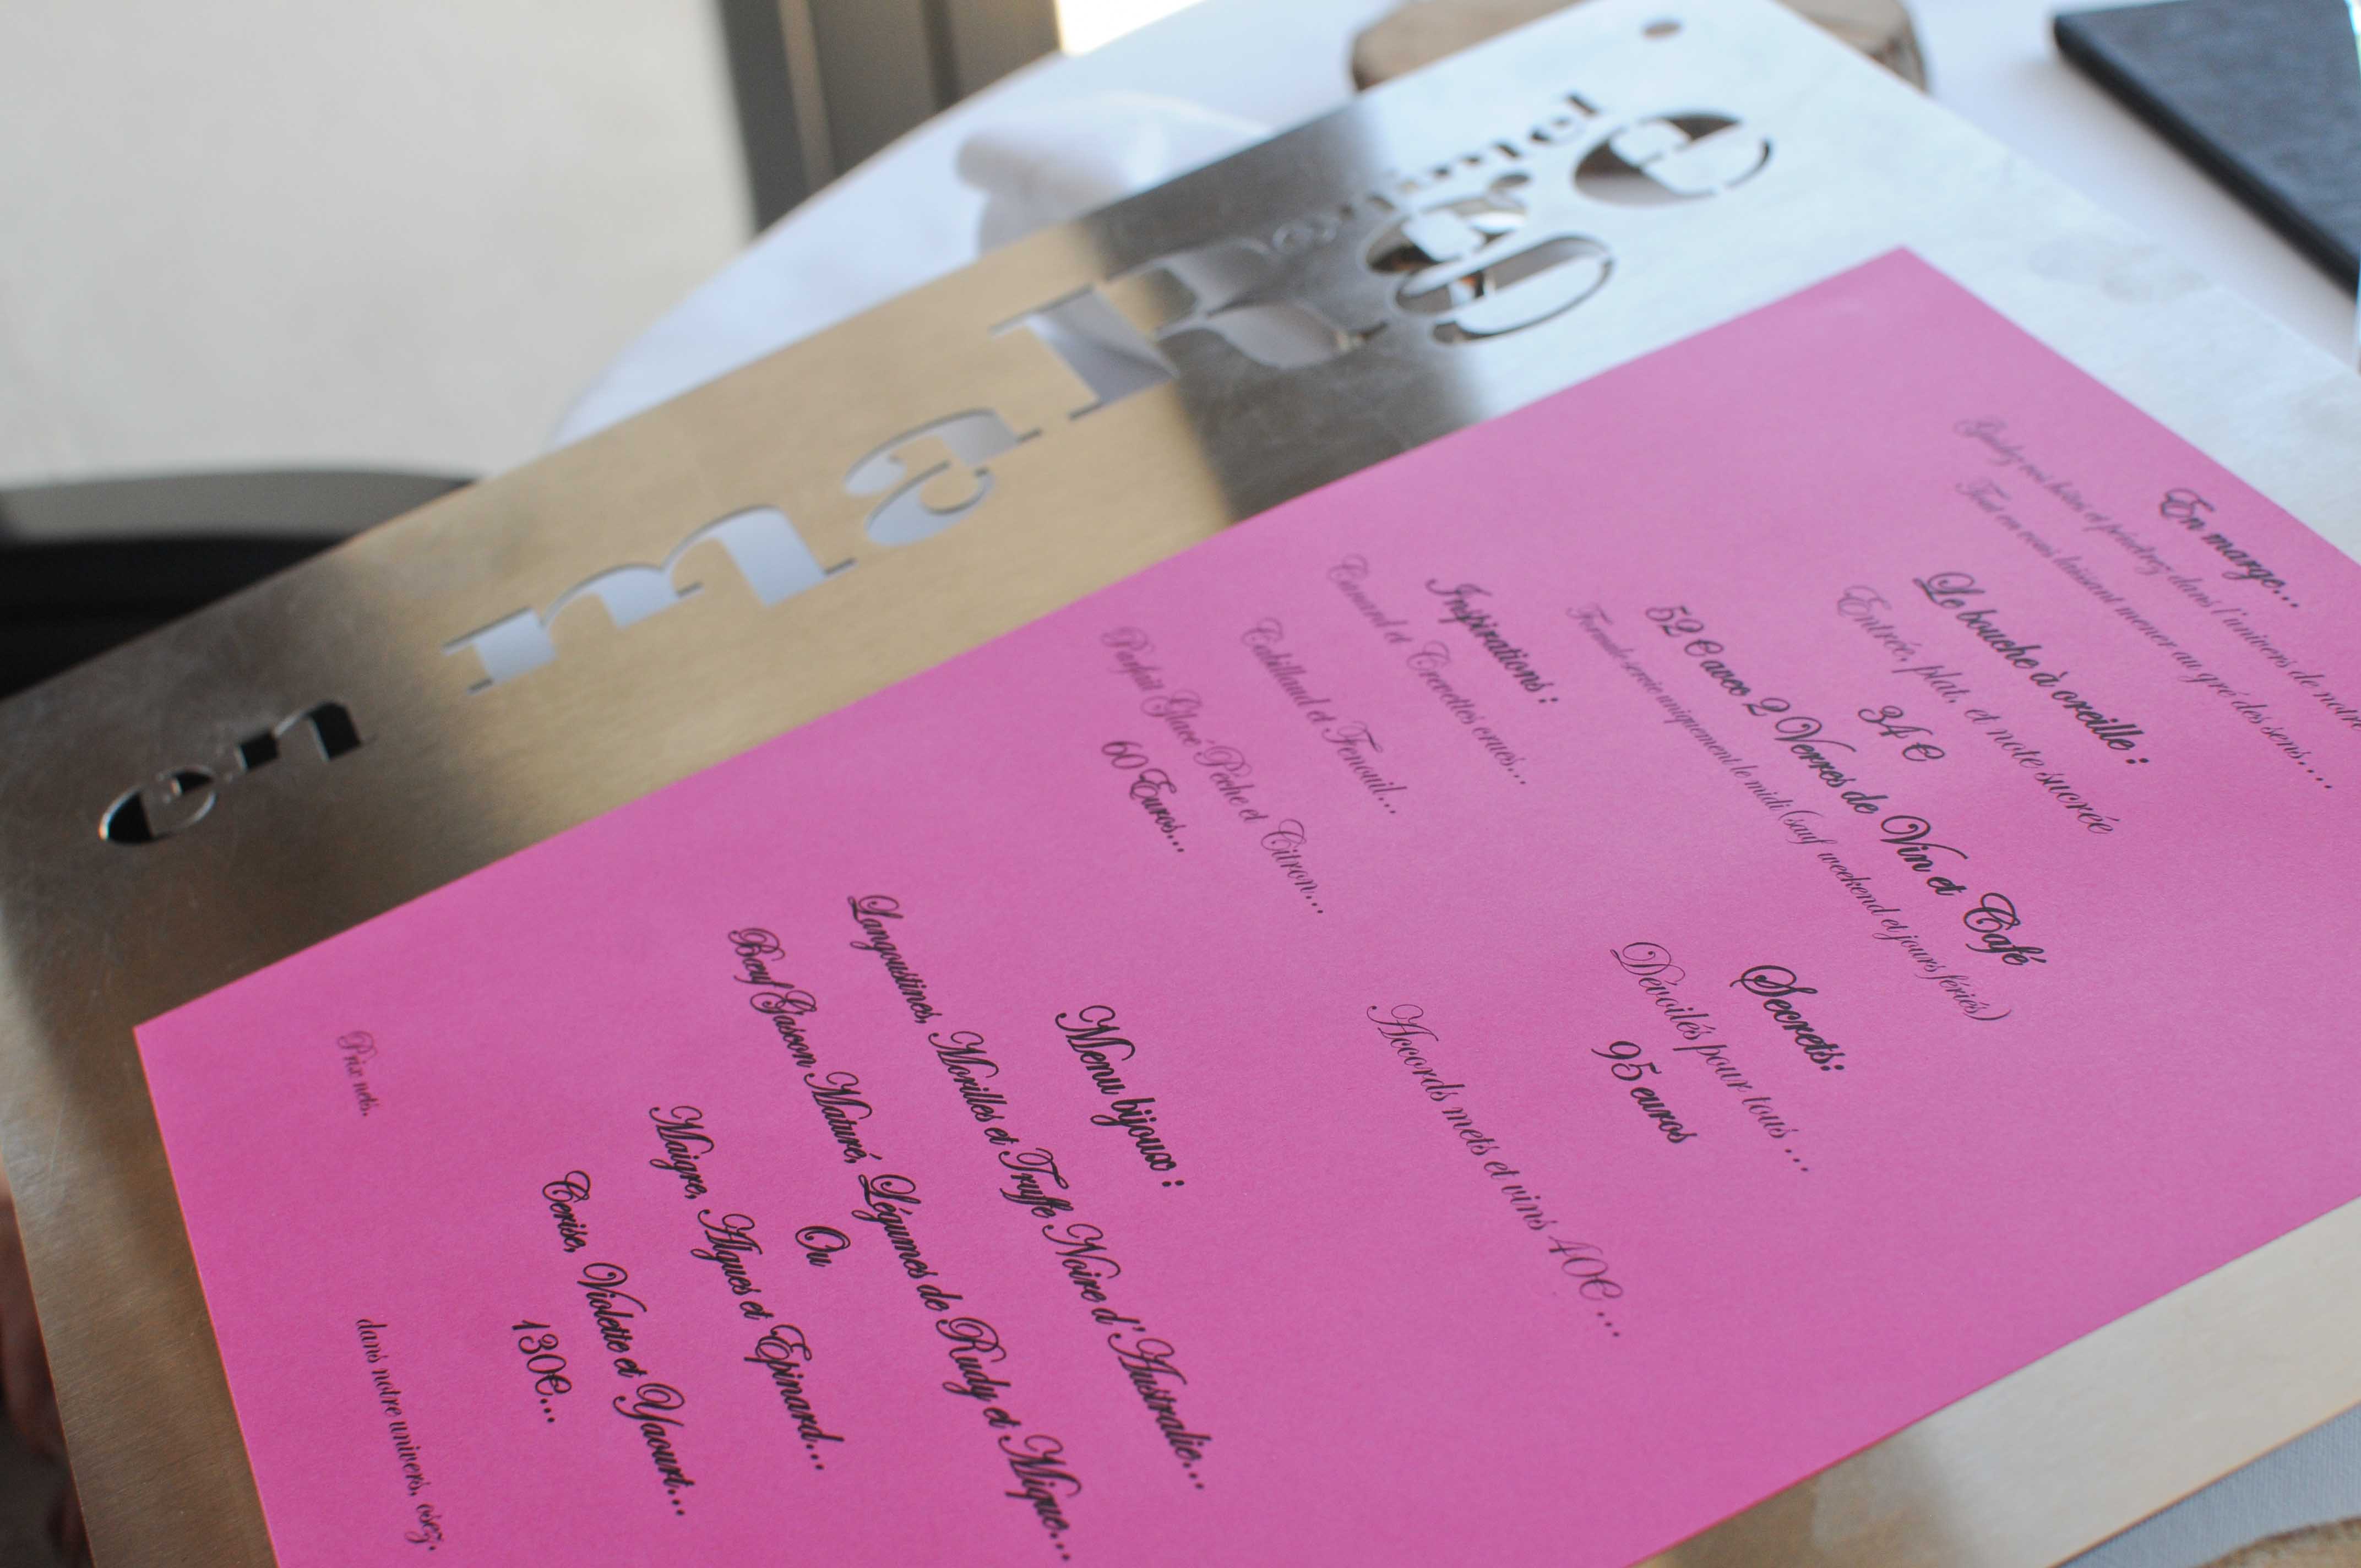 en marge
En marge...
dans l'univers de notre
Tout en vous laissant mener au gré des sens....
Le bouche à oreille :
Entrée, plat, et note sucrée
34 €
52 € avec 2 Verres de Vin et Café
Formule servie uniquement le midi (sauf weekend et jours fériés)
Inspirations :
Canard et Crevettes crues...
Cabillaud et Fenouil...
Parfait Glacé Pêche et Citron...
60 Euros...
Secrets:
Dévoilés pour tous ...
95 euros
Accords mets et vins 40€ ...
Menu bijoux :
Langoustines, Morilles et Truffe Noire d'Australie...
Bœuf Gascon Maturé, Légumes de Rudy et Mique...
Ou
Maigre, Algues et Epinard...
Cerise, Violette et Yaourt...
130€...
Prix nets.
dans notre univers, osez.